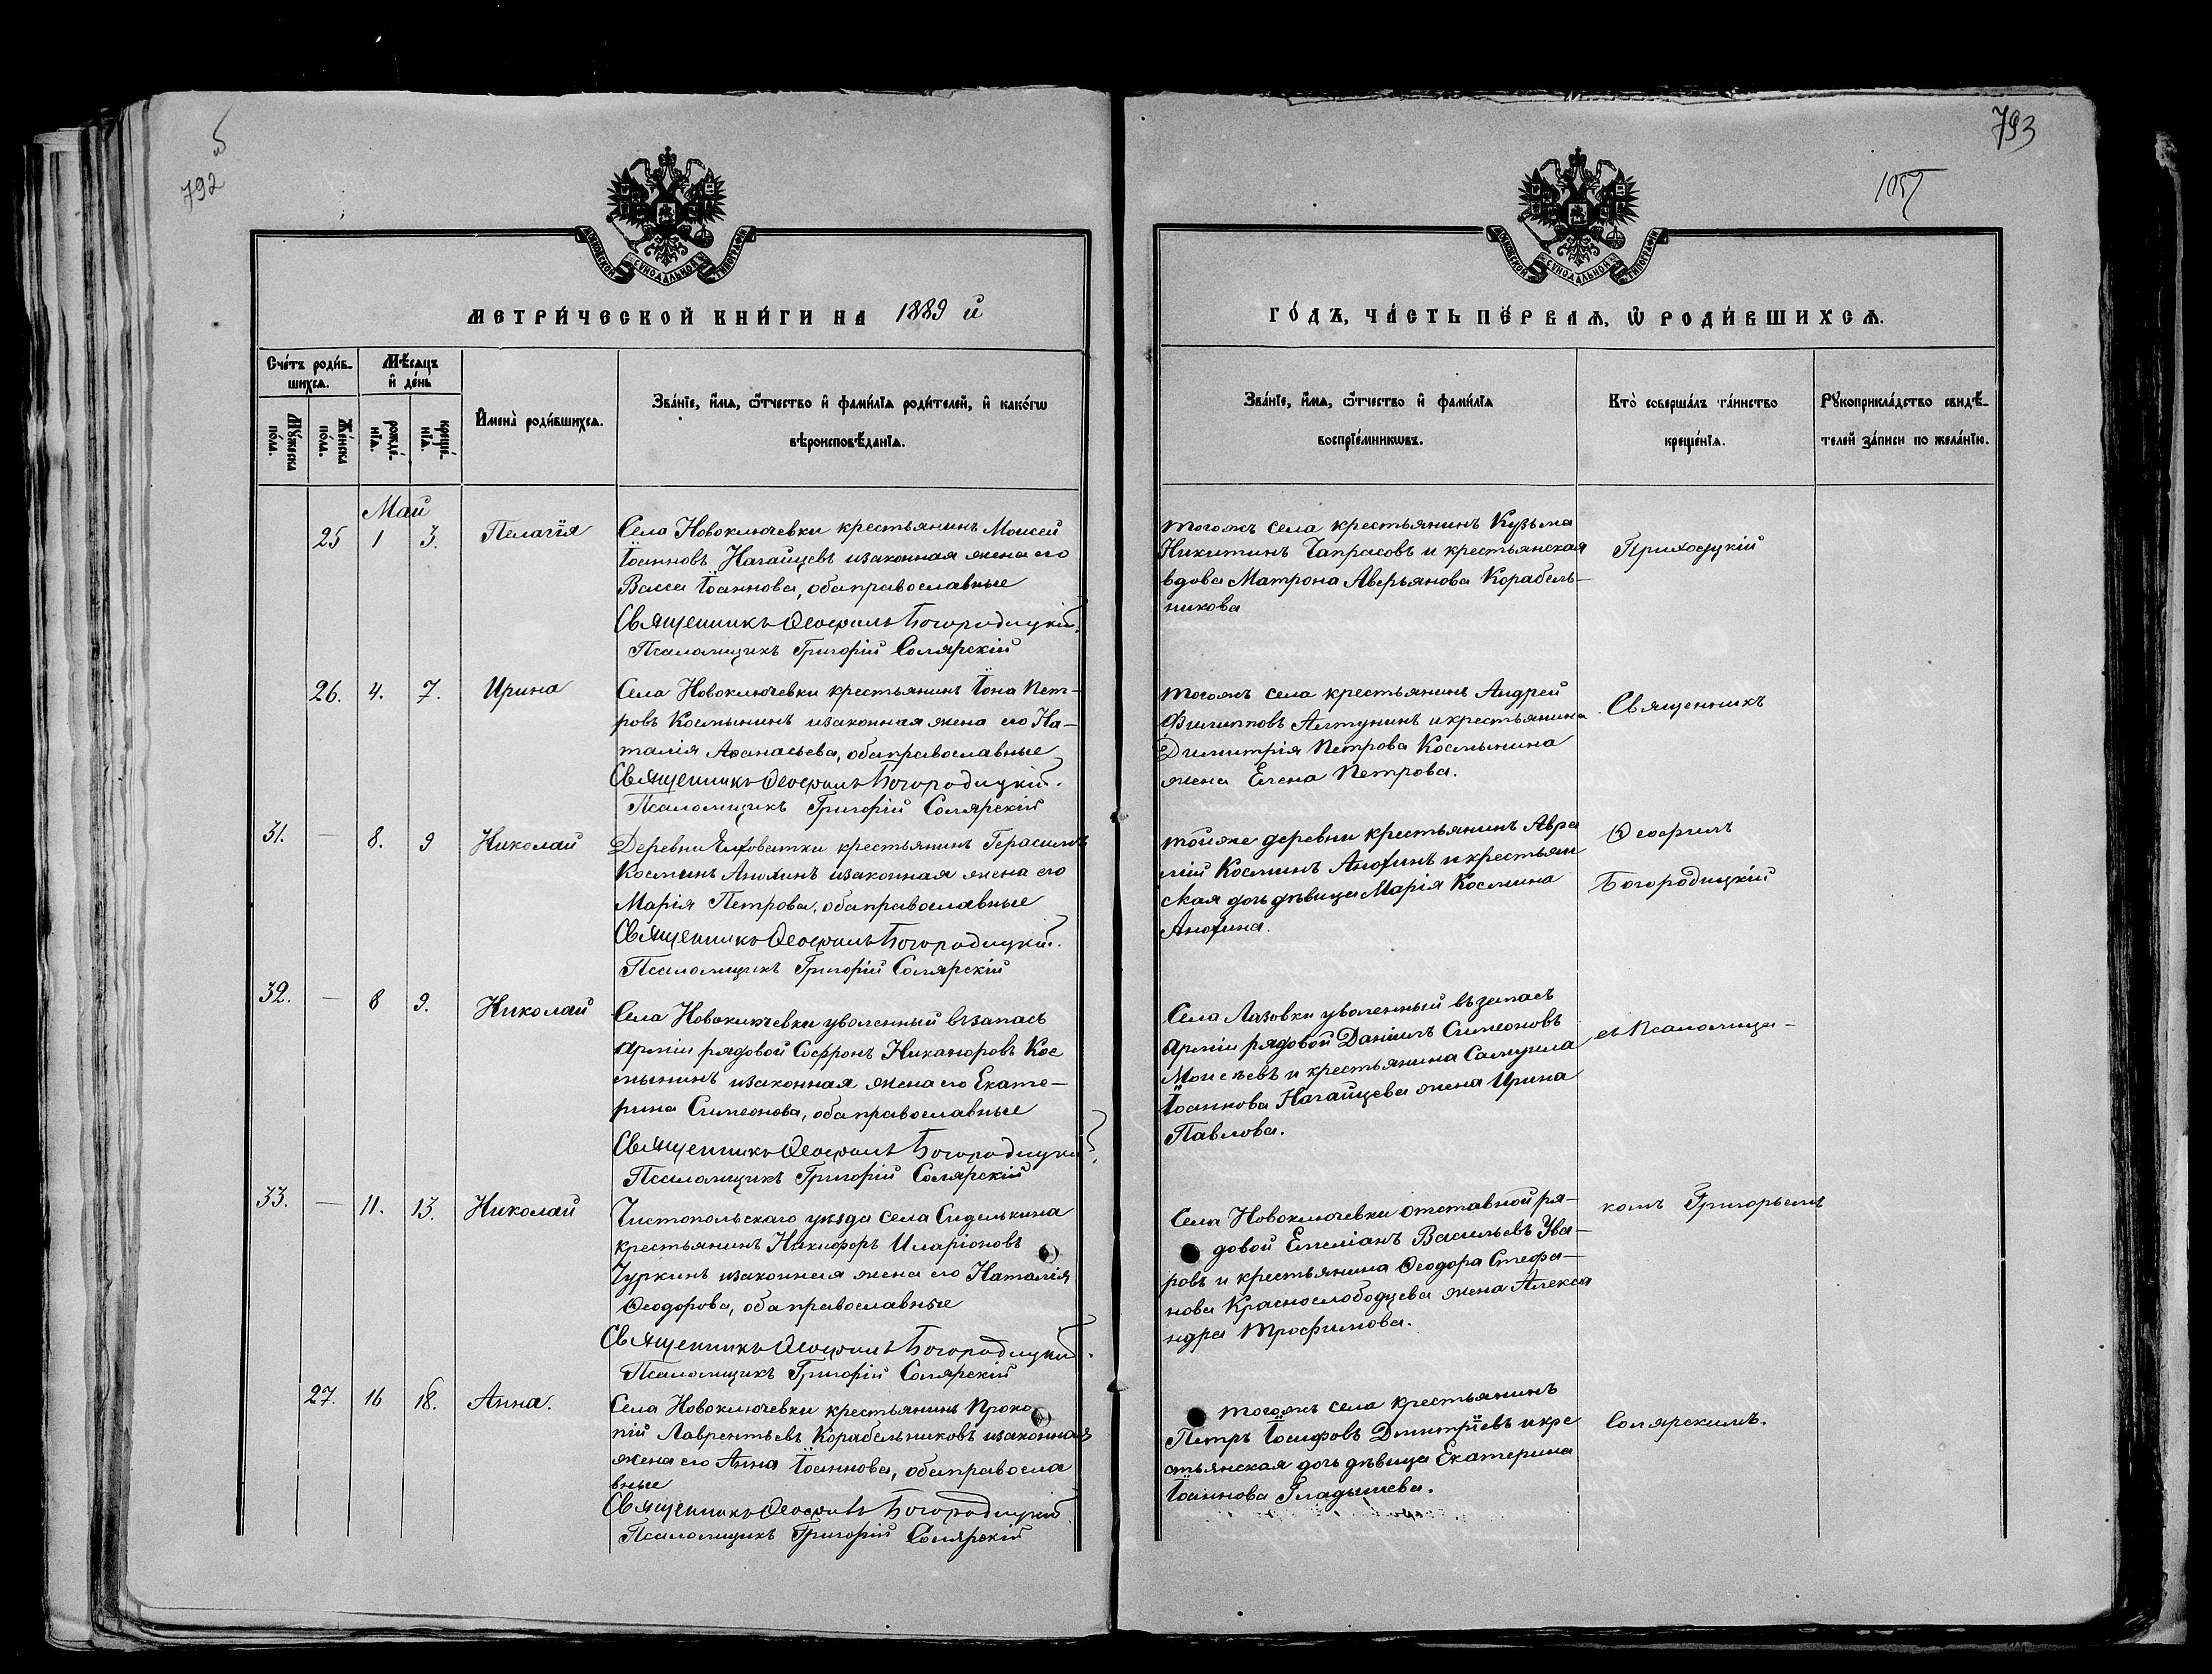 792
793
1057
МОСКОВСКОЙ СѴНОДАЛЬНОЙ ТИПОГРАФІИ
МЕТРИ́ЧЕСКОЙ КНИ́ГИ НА 1889 й
Сче́тъ роди́в-
шихсѧ.
Мѣ́сѧцъ
и҆ де́нь
Мꙋ́жеска
по́ла.
Же́нска
по́ла.
рожде́-
нїѧ.
креще́-
нїѧ.
И҆мена̀ роди́вшихсѧ.
Зва́нїе, и҆́мѧ, ѻ҆́тчество и҆ фами́лїѧ роди́телей, и҆ како́гѡ
вѣроисповѣ́данїѧ.
Май
25 1 3. Пелагія
Села Новоключевки крестьянинъ Моисей
Іоанновъ Нагайцевъ изаконная жена его
Васса Іоаннова, обаправославные
Священникъ Ѳеофилъ Богородицкій.
Псаломщикъ Григорій Солярскій
26. 4. 7. Ирина
Села Новоключевки крестьянинъ Іона Пет-
ровъ Космынинъ изаконная жена его На-
талія Аѳанасьева, обаправославные
Священникъ Ѳеофилъ Богородицкій.
Псаломщикъ Григорій Солярскій
31. — 8. 9 Николай
Деревни Елховатки крестьянинъ Герасимъ
Косминъ Анохинъ изаконная жена его
Марія Петрова, обаправославные
Священникъ Ѳеофилъ Богородицкій.
Псаломщикъ Григорій Солярскій
32. — 8 9. Николай
Села Новоключевки уволенный въ запасъ
арміи рядовой Софронъ Никаноровъ Кос
мынинъ изаконная жена его Екате-
рина Симеонова, обаправославные
Священникъ Ѳеофилъ Богородицкій.
Псаломщикъ Григорій Солярскій
33. — 11. 13. Николай
Чистопольскаго уѣзда села Сиделькина
крестьянинъ Никифоръ Иларіоновъ
Чуркинъ изаконная жена его Наталія
Ѳеодорова, обаправославные
Священникъ Ѳеофилъ Богородицкій.
Псаломщикъ Григорій Солярскій
27. 16 18. Анна.
Села Новоключевки крестьянинъ Проко
пій Лаврентьевъ Корабельниковъ изаконная
жена его Анна Іоаннова, обаправосла
вные
Священникъ Ѳеофилъ Богородицкій
Псаломщикъ Григорій Солярскій
МОСКОВСКОЙ СѴНОДАЛЬНОЙ ТИПОГРАФІИ
ГО́ДЪ, ЧА́СТЬ ПЕ́РВАѦ, Ѽ РОДИ́ВШИХСѦ.
Зва́нїе, и҆́мѧ, ѻ҆́тчество и҆ фами́лїѧ
воспрїе́мникѡвъ.
Кто̀ соверша́лъ та́инство
креще́нїѧ.
Рꙋкоприкла́дство свидѣ́-
телей за́писи по жела́нїю.
тогожъ села крестьянинъ Кузьма
Никитинъ Чапрасовъ и крестьянская
вдова Матрона Аверьянова Корабель-
никова
Приходскій
тогожъ села крестьянинъ Андрей
Филипповъ Алтунинъ и крестьянина
Димитрія Петрова Космынина
жена Елена Петрова.
Священникъ
тойже деревни крестьянинъ Авра
мій Косминъ Анохинъ и крестьян
ская дочь дѣвица Марія Космина
Анохина.
Ѳеофилъ
Богородицкій
Села Лазовки уволенный въ запасъ
арміи рядовой Даніилъ Симеоновъ
Моисѣевъ и крестьянина Самуила
Іоаннова Нагайцева жена Ирина
Павлова.
съ Псаломщи-
Села Новоключевки отставной ря-
довой Емеліанъ Васильевъ Ува-
ровъ и крестьянина Ѳеодора Стефа-
нова Краснослободцева жена Алекса
ндра Трофимова.
комъ Григорьемъ
тогожъ села крестьянинъ
Петръ Іосифовъ Дмитріевъ и кре
стьянская дочь дѣвица Екатерина
Іоаннова Гладышева.
Солярскимъ.